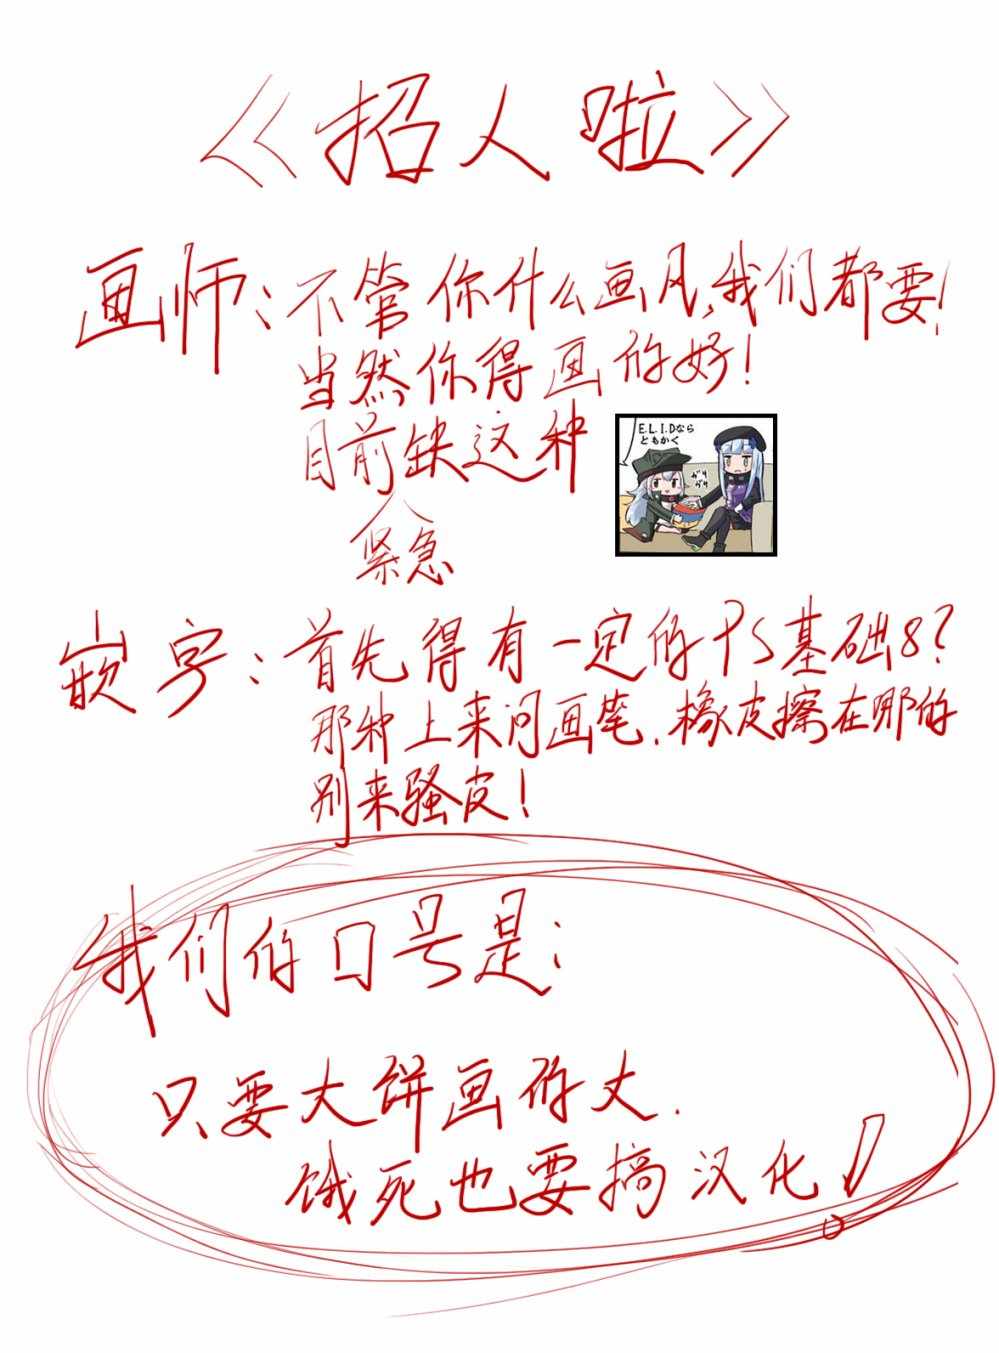 《招人啦》
画师:不管你什么画风,我们都要!
当然你得画的好!
目前缺这种
E.L.I.Dなら
ともかく
ガリ
ガリ
紧急
嵌字:首先得有一定的PS基础8?
那种上来问画笔.橡皮擦在哪的
别来骚皮!
我们的口号是:
只要大饼画的大.
饿死也要搞汉化!